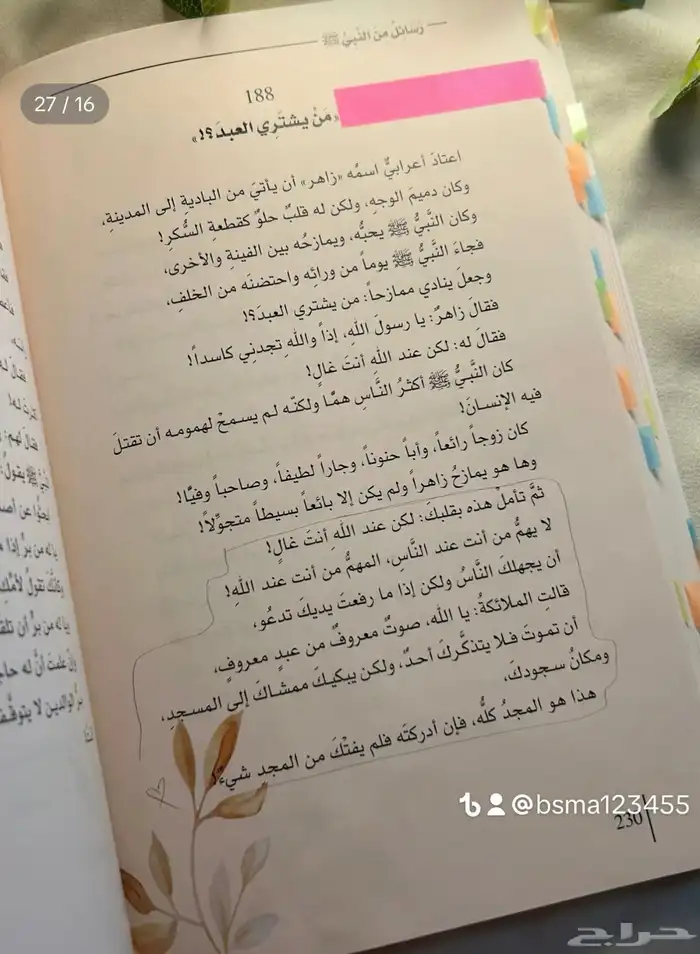 رسائل من النَّبيِّ ﷺ
27 / 16
188
«مَنْ يشتَرِي العبدَ؟!»
اعتادَ أعرابيٌّ اسمُه «زاهر» أن يأتيَ من الباديةِ إلى المدينةِ،
وكان دميمَ الوجهِ، ولكن له قلبٌ حلوٌ كقطعةِ السُّكرِ!
وكان النَّبيُّ ﷺ يحبُّه، ويمازحُه بين الفينةِ والأخرى،
فجاءَ النَّبيُّ ﷺ يوماً من ورائِه واحتضنَه من الخلفِ،
وجعلَ ينادي ممازحاً: من يشتري العبدَ؟!
فقالَ زاهرٌ: يا رسولَ اللهِ، إذاً واللهِ تجدني كاسداً!
فقالَ له: لكن عند اللهِ أنتَ غالٍ!
كان النَّبيُّ ﷺ أكثرُ النَّاسِ همَّا ولكنّه لم يسمحْ لهمومه أن تقتلَ
فيه الإنسانَ!
كان زوجاً رائعاً، وأباً حنوناً، وجاراً لطيفاً، وصاحباً وفيَّا!
وها هو يمازحُ زاهراً ولم يكن إلا بائعاً بسيطاً متجوِّلاً!
ثمَّ تأملْ هذه بقلبكَ: لكن عند اللهِ أنتَ غالٍ!
لا يهمُّ من أنت عند النَّاسِ، المهمُّ من أنت عند اللهِ!
أن يجهلكَ النَّاسُ ولكن إذا ما رفعتَ يديكَ تدعُو،
قالتِ الملائكةُ: يا الله، صوتٌ معروفٌ من عبدٍ معروفٍ،
أن تموتَ فلا يتذكَّركَ أحدٌ، ولكن يبكيكَ ممشاكَ إلى المسجدِ،
ومكانُ سجودكَ،
هذا هو المجدُ كلُّه، فإن أدركتَه فلم يفتْكَ من المجدِ شيءٌ!
@bsma123455
230
حراج